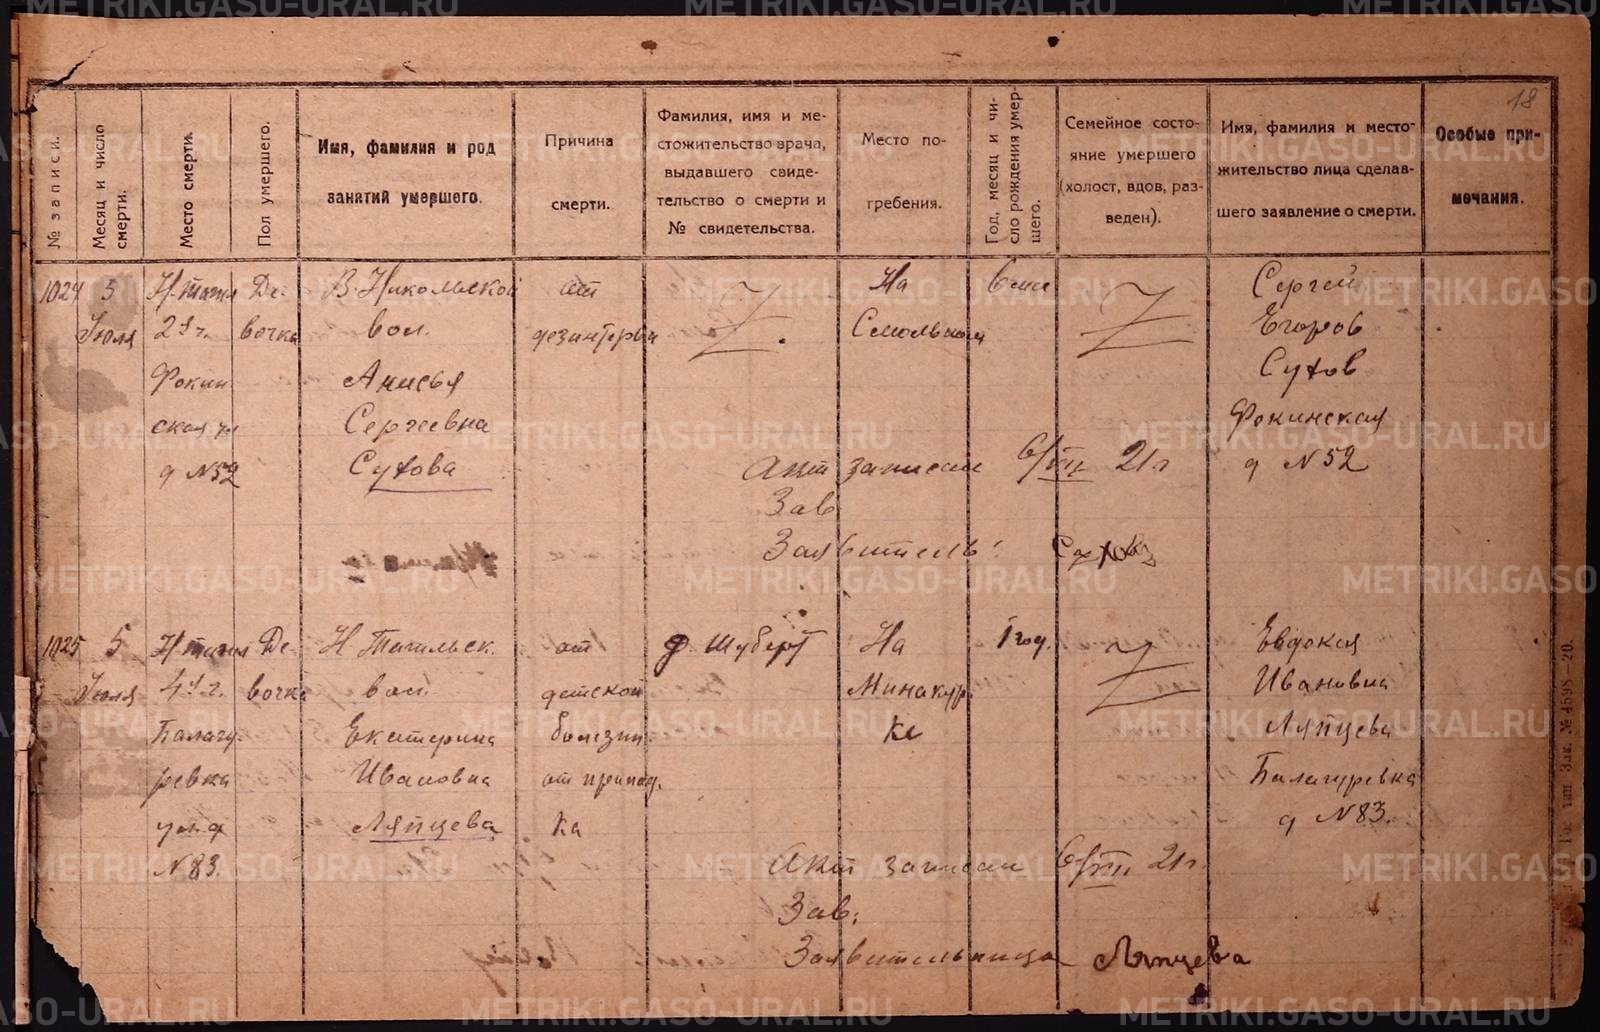 18
№ записи.
Месяц и число смерти.
Место смерти.
Пол умершего.
Имя, фамилия и род занятий умершего.
Причина смерти.
Фамилия, имя и местожительство врача, выдавшего свидетельство о смерти и № свидетельства.
Место погребения.
Год, месяц и число рождения умершего.
Семейное состояние умершего (холост, вдов, разведен).
Имя, фамилия и местожительство лица сделавшего заявление о смерти.
Особые примечания.
1024
5
Июля
Н-тагил
21 г.
Фокин
ская ул
д N 52
Де-
вочка
В-Никольской
вол.
Анисья
Сергеевна
Сухова
от
дезинтерьи
На
Смольном
Сергей
Егоров
Сухов
Фокинская
д N 52
Акт записан 6/VII 21 г
Зав
Заявитель: Сухов
1025
5
Июля
Н тагил
Балагу-
ревка
ул д
N 83.
Де-
вочка
Н Тагильск.
вол.
Екатерина
Ивановна
Ляпцева
от
детской
болезни
от припад.
ка
ф. Шуберт
На
Минакур
ке
1 год.
Евдокия
Ивановна
Ляпцева
Балагуревка
д N 83.
Акт записан 6/VII 21 г.
Зав.
Заявительница Ляпцева
METRIKI.GASO-URAL.RU